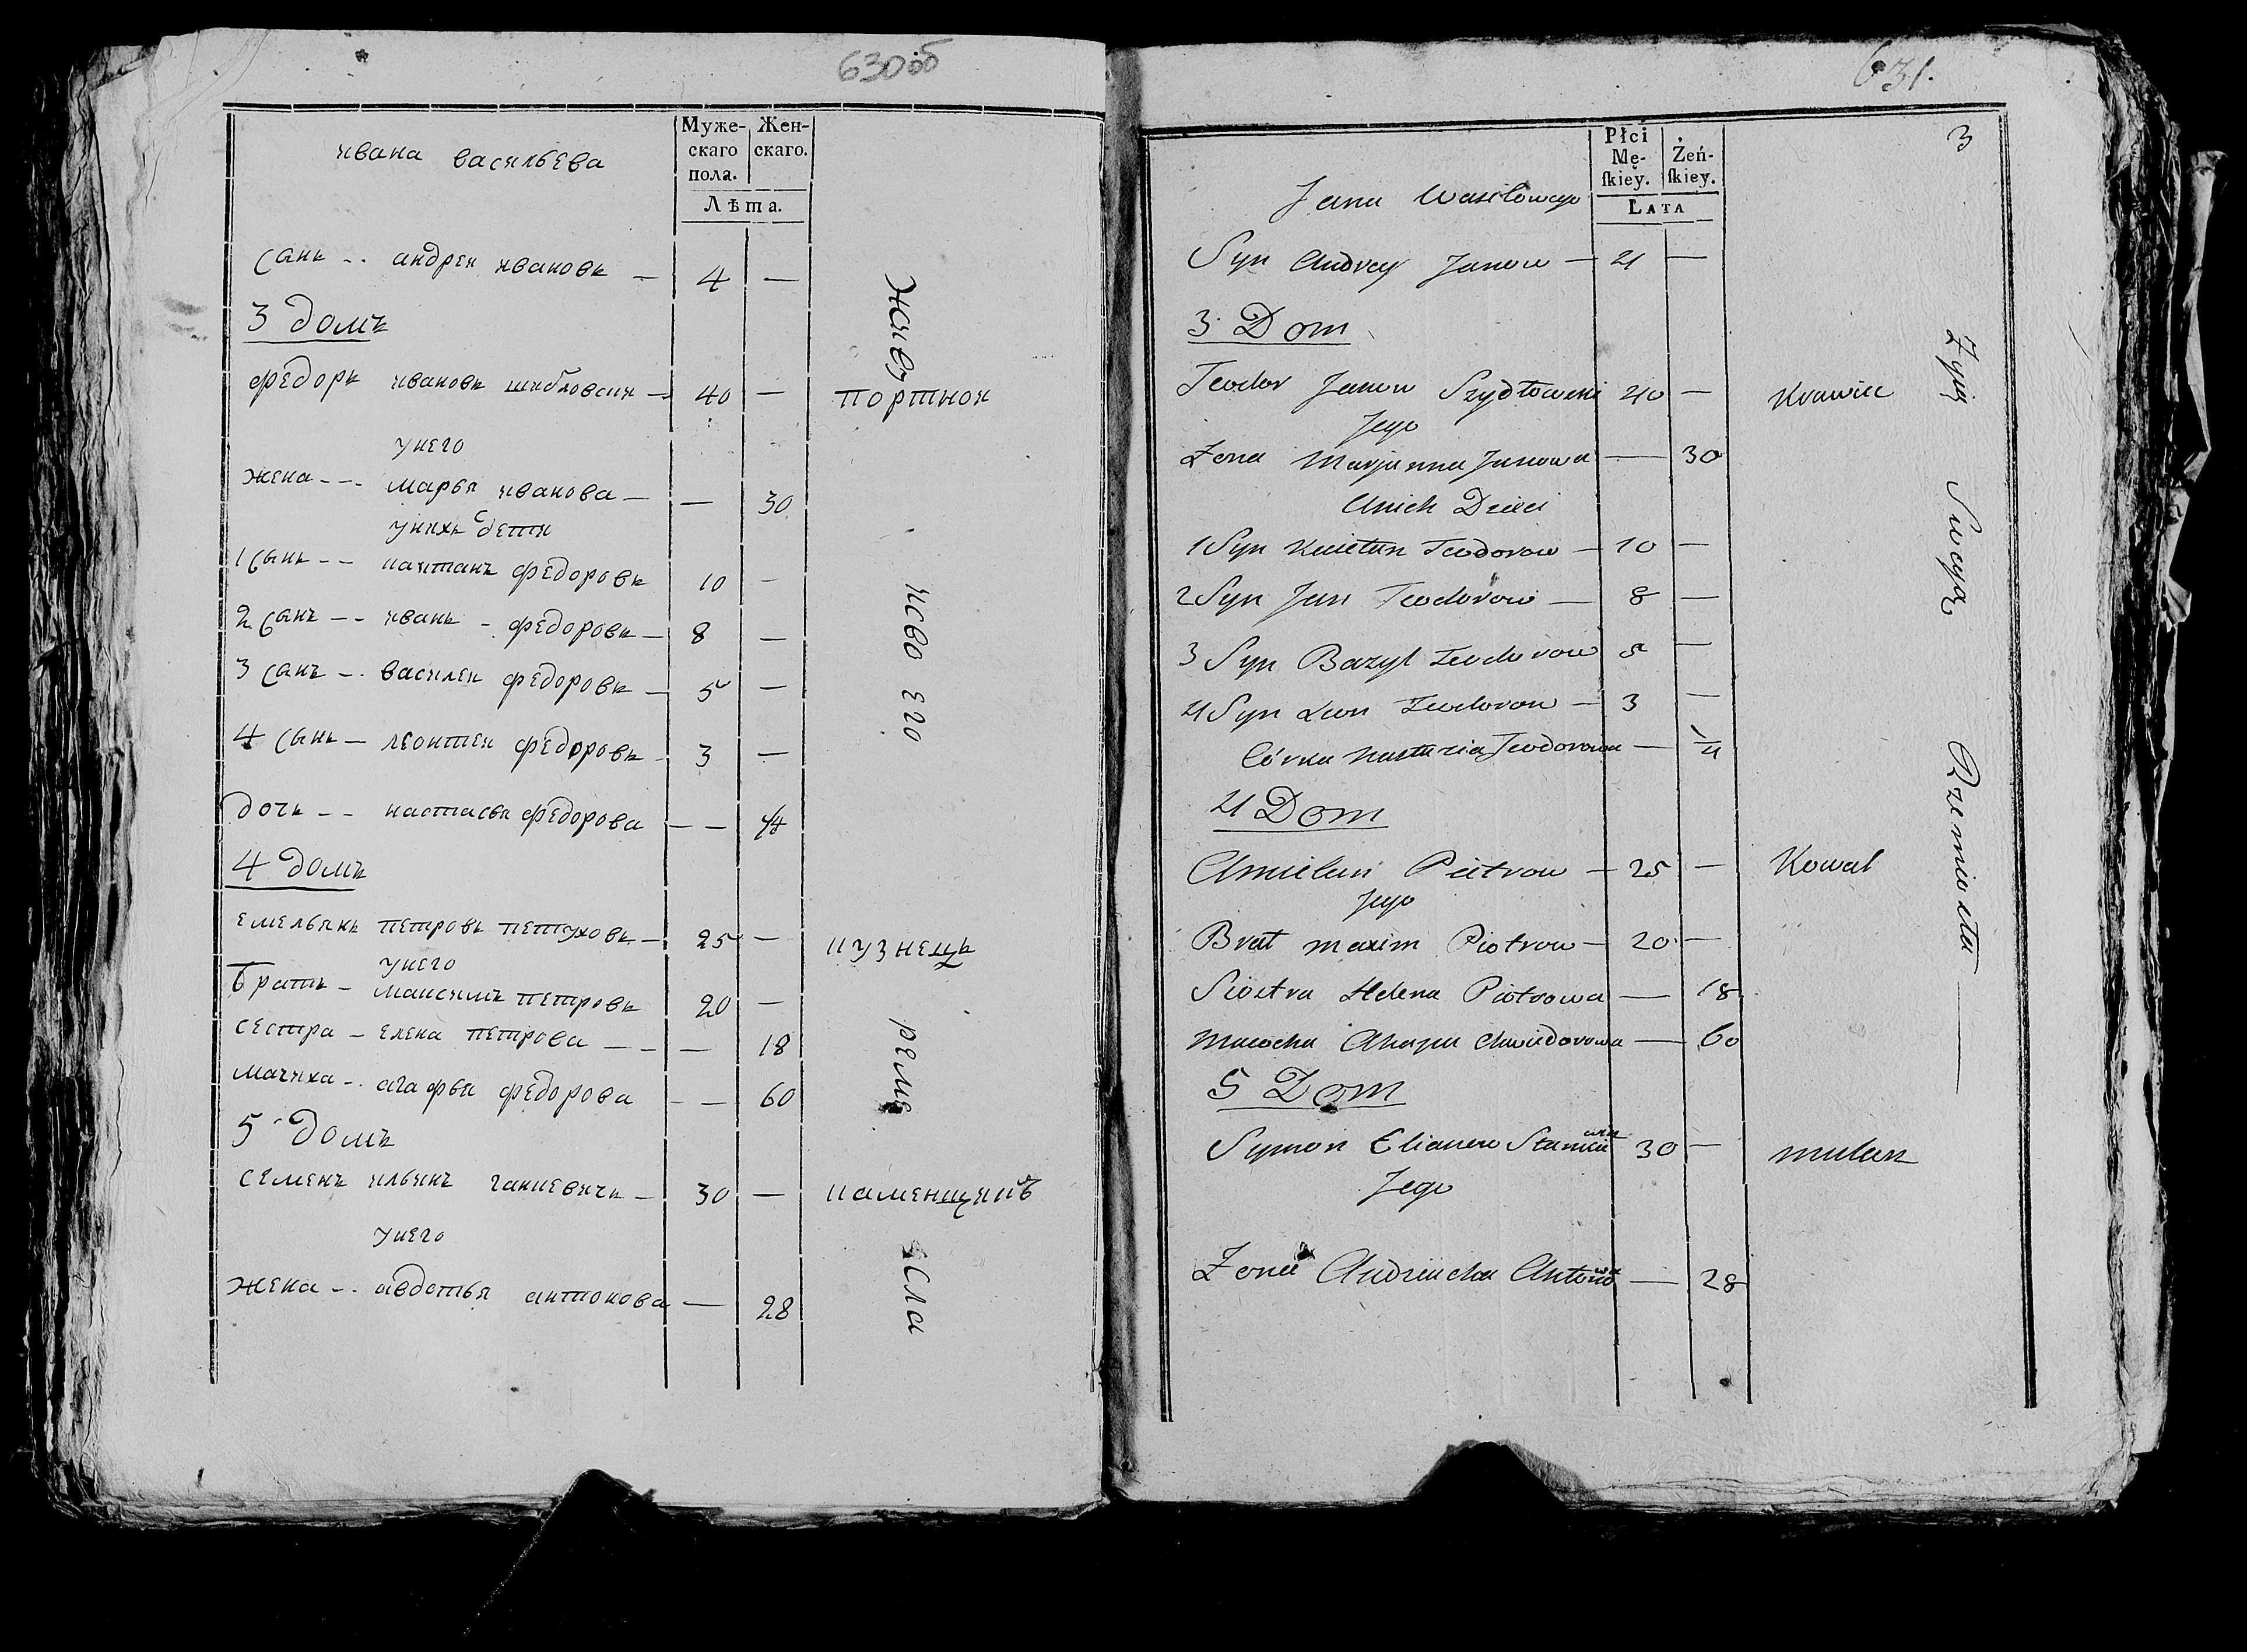 630об
Муже- Жен-
скаго скаго.
пола.
Лѣта.
ивана васильева
сынъ -- андреи ивановъ — 4 —
3 домъ
федоръ ивановъ шидловски — 40 — портнои
унего
жена --- марья иванова — — 30
унихъ дети
1 сынъ -- каитанъ федоровъ 10 —
2 сынъ -- иванъ - федоровъ — 8 —
3 сынъ -- василеи федоровъ — 5 —
4 сынъ — леонтеи федоровъ 3 —
дочь -- настасья федорова — — 1/4
4 домъ
емельянъ петровъ петуховъ — 25 — кузнецъ
унего
братъ — максимъ петровъ 20 —
сестра — елена петрова — — 18
мачиха -- агафья федорова — — 60
5 домъ
семенъ ильинъ — 30 — каменщикъ
унего
жена -- авдотья антонова — 28
живу
исво его
реме
сла
631.
3
Płci
Mę- Żeń-
ſkiey. ſkiey.
Lata
Jana Wasilowego
Syn Andrey Janow — 4 —
3 Dom
Teodor Janow Szydłowski 40 — Krawiec
Jego
Żona Marjanna Janowa — 30
Unich Dzieci
1 Syn Kaietan Teodorow — 10 —
2 Syn Jan Teodorow — 8 —
3 Syn Bazyl Teodorow 5 —
4 Syn Leon Teodorow — 3 —
Córka Nastazia Teodorowa — 1/4
4 Dom
Amielan Pietrow — 25 — Kowal
Jego
Brat Maxim Piotrow — 20 —
Siostra Helena Piotrowa — 18
Macocha Ahapa Chwiedorowa — 60
5 Dom
Symon 30 — mularz
Jego
Żona Antonowa — 28
Żyią Swoyą Rzemiosła —